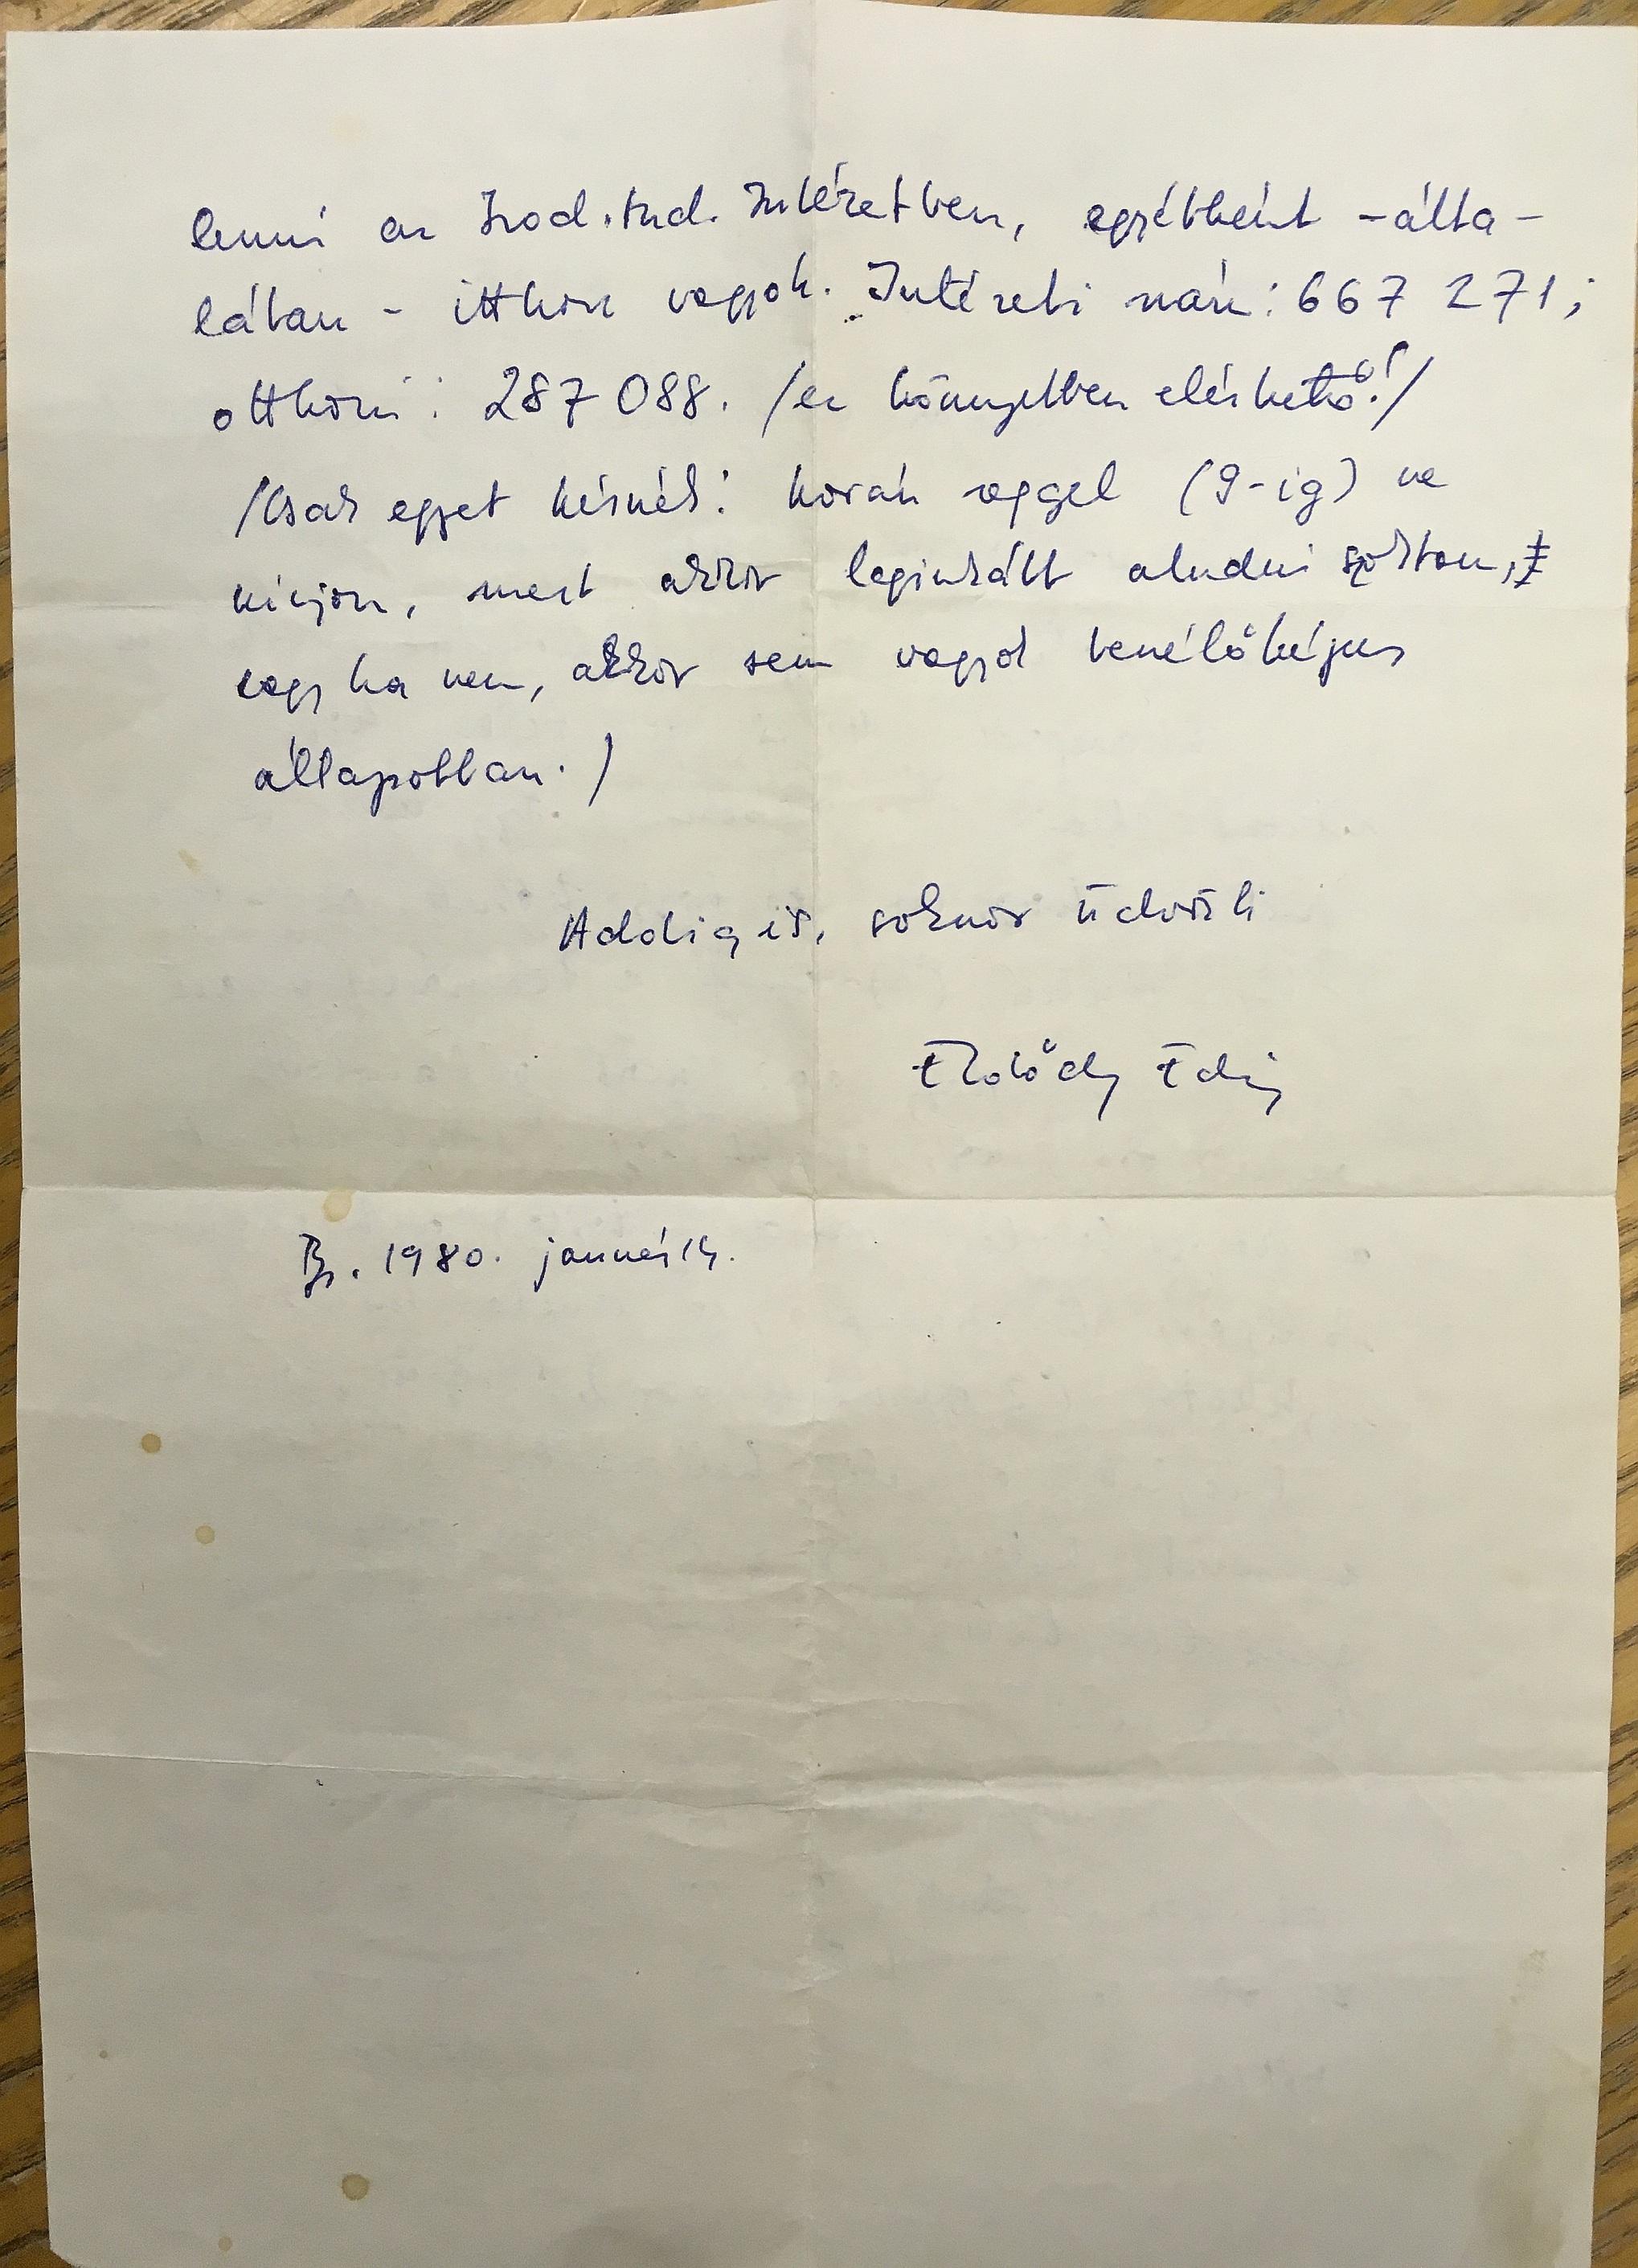 lenni az Irod. tud. Intézetben, egyébként – álta –
lában – itthon vagyok. Intézeti szám: 667 271;
otthoni: 287 088. /ez könnyebben elérhető!/
/Csak egyet kérnék: korán reggel (9-ig) ne
hívjon, mert akkor leginkább aludni szoktam,
vagy ha nem, akkor sem vagyok beszélőképes
állapotban./
Addig is, sokszor üdvözli
Erdődy Edit
Bp. 1980. január 14.